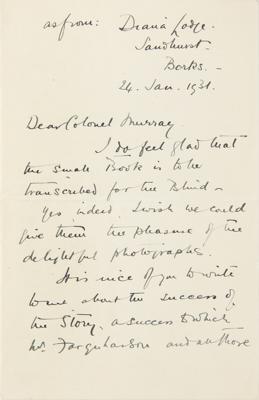 as from: Diana Lodge.
Sandhurst.
Berks. —
24. Jan. 1931.
Dear Colonel Murray
I do feel glad that
the small Book is to be
transcribed for the Blind —
Yes, indeed, I wish we could
give them the pleasure of the
delightful photographs.
It is nice of you to write
to me about the success of
the Story, a success to which
Mr. Farquharson and all those